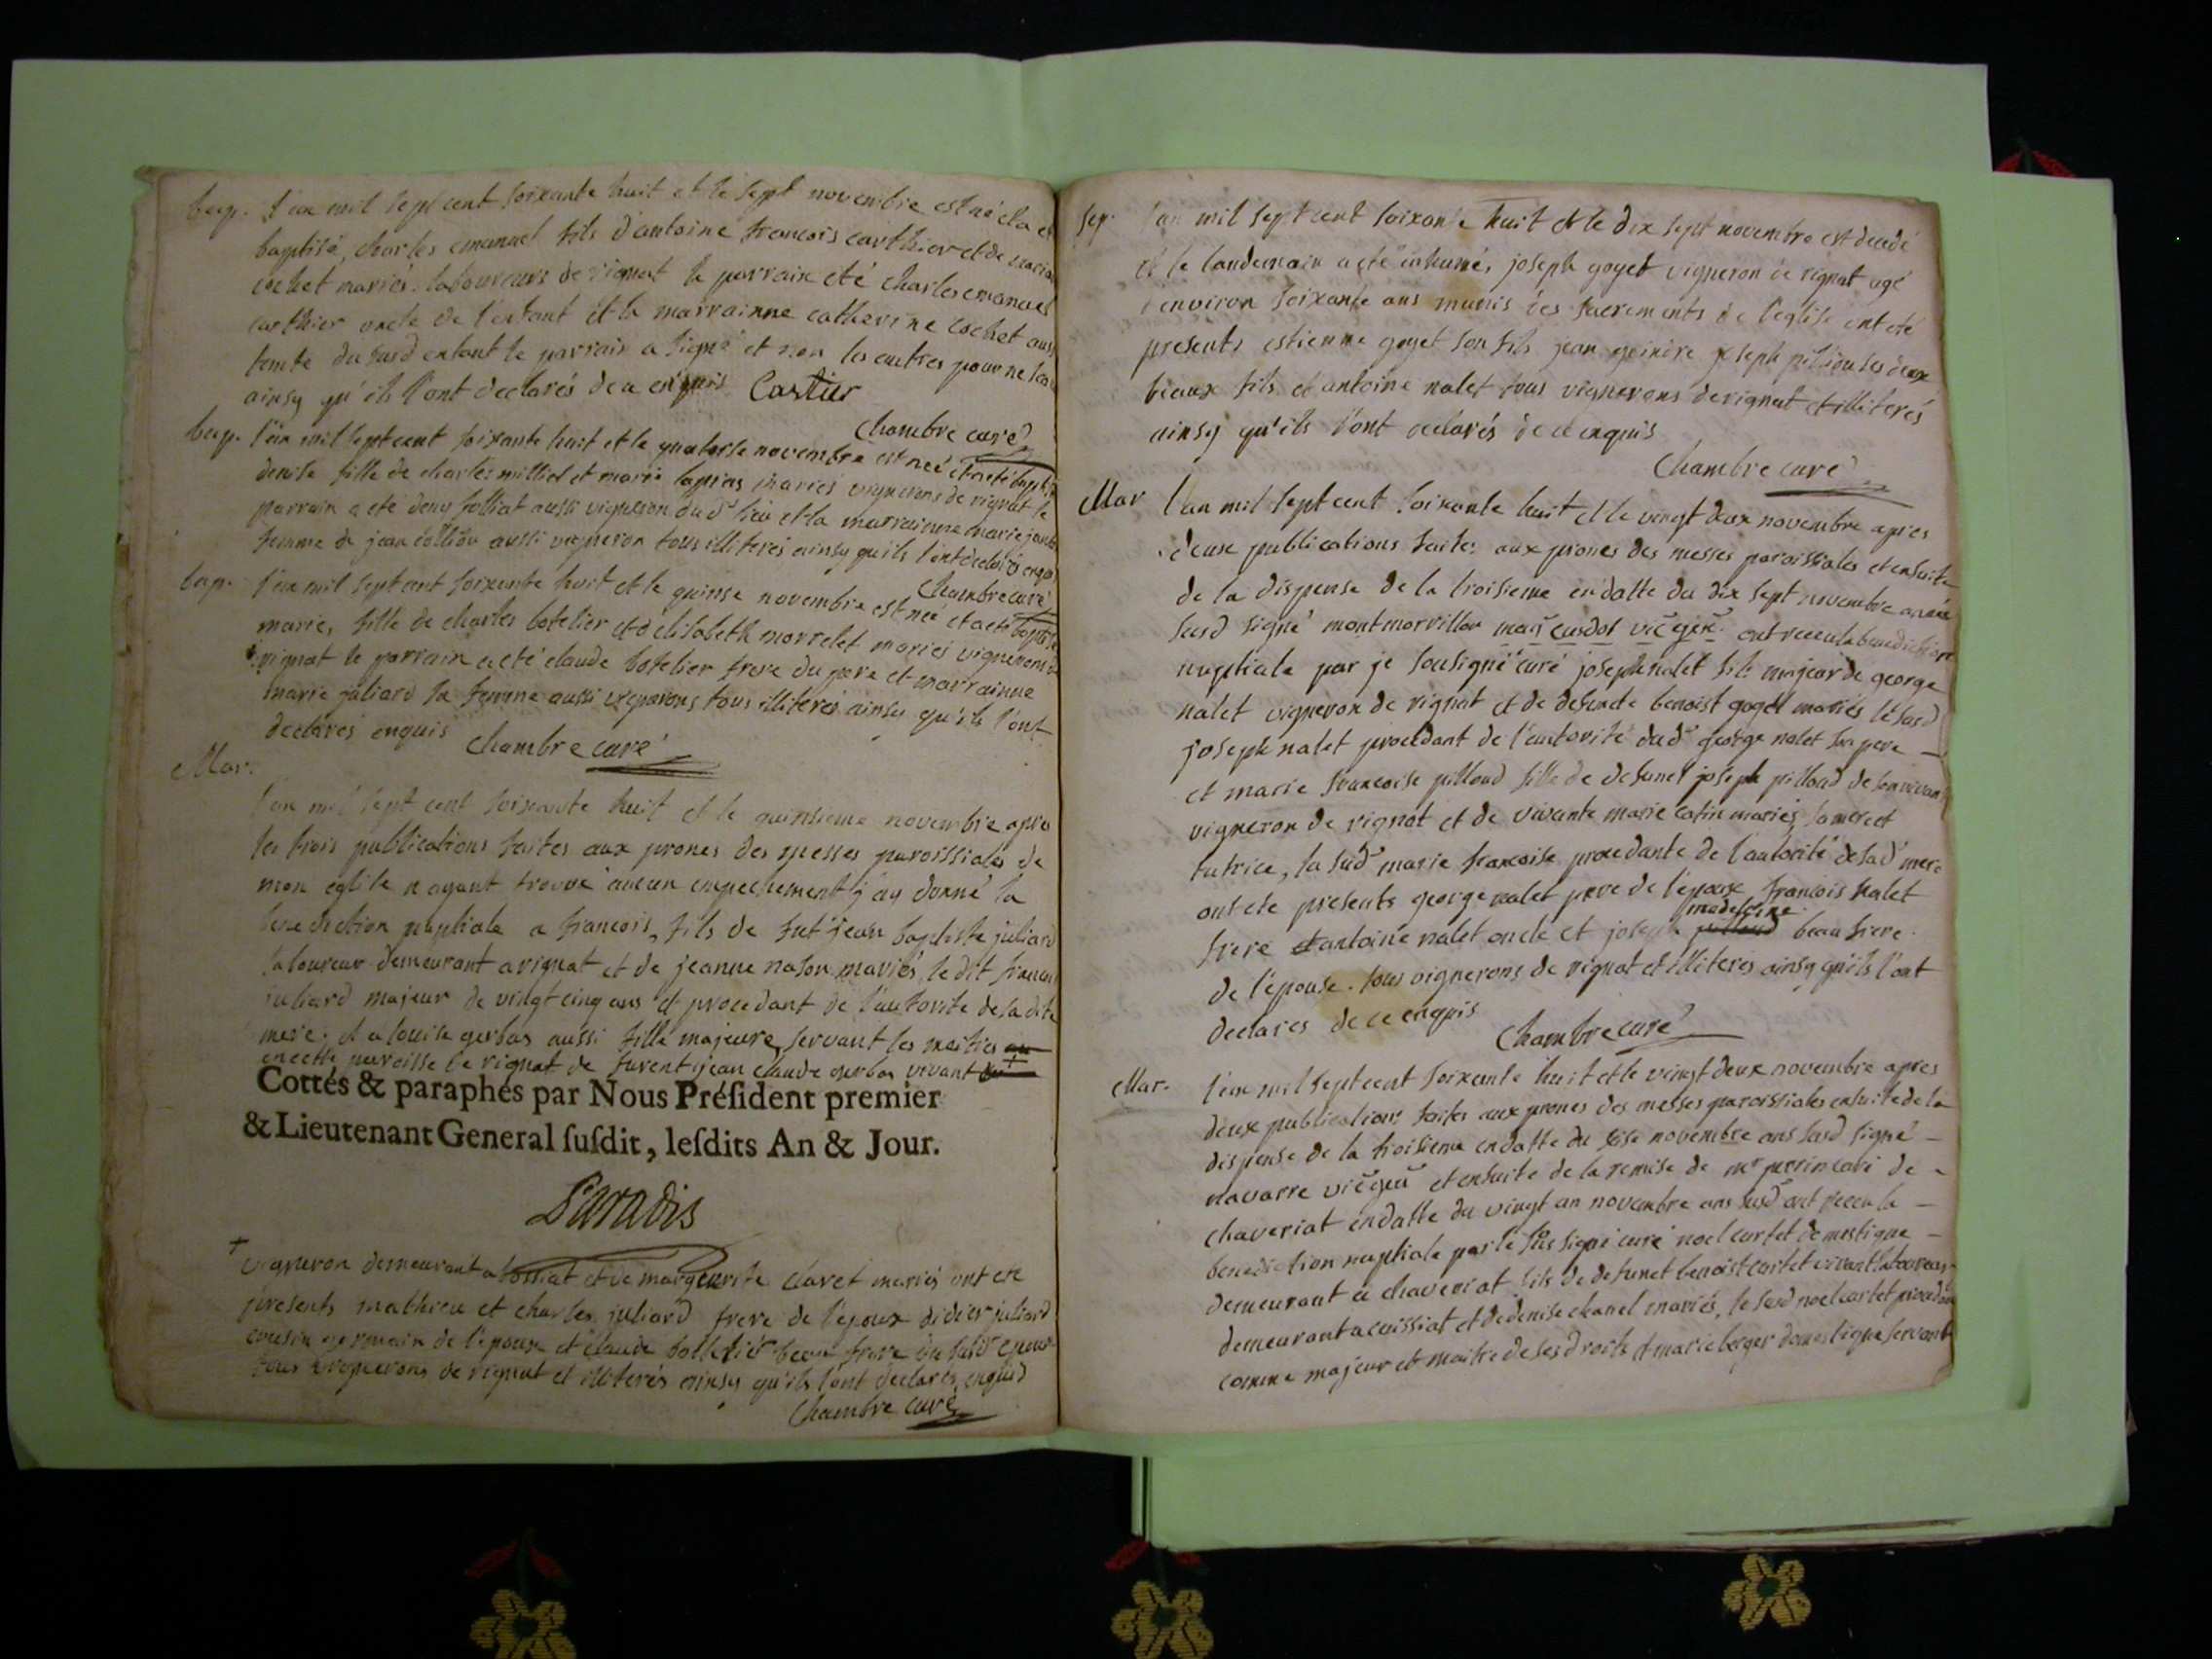 bap. l'an mil sept cent soixante huit et le sept novembre est né et a été
baptisé, charles emanuel fils d'antoine francois carthier et de
cochet mariés laboureurs de rignat le parrain eté charles emanuel
carthier oncle de l'enfant et la marrainne catherine cochet aussi
tente du susd enfant le parrain a signé et non les autres pour ne
ainsy qu'ils l'ont declarés de ce enquis Cartier
Chambre curé
bap. l'an mil sept cent soixante huit et le quatorse novembre est née et a eté
denise fille de charles milliet et marie mariés vignerons de rignat le
parrain a eté deny folliat aussi vigneron dud lieu et la marrainne marie
femme de jean aussi vigneron tous illiterés ainsy qu'ils l'ont declarés
Chambre curé
bap. l'an mil sept cent soixante huit et le quinse novembre est née et a eté baptisé
marie, fille de charles botelier et d'elisabeth morrelet mariés vignerons
rignat le parrain a eté claude botelier frere du pere et marrainne
marie juliard sa femme aussi vignerons tous illiterés ainsy qu'ils l'ont
declarés enquis Chambre curé
Mar.
l'an mil sept cent soixante huit et le quinsieme novembre apres
les trois publications faites aux prones des messes paroissiales de
mon eglise n'ayant trouvé aucun empechement j'ay donné la
benediction nuptiale a francois, fils de fut jean baptiste juliard
laboureur demeurant a rignat et de jeanne mariés, le dit
juliard majeur de vingt cinq ans et procedant de l'autorite de sa dite
mere; et a louise gerbas aussi fille majeure, servant les maitres
en cette paroisse de rignat de furent jean claude gerbas vivant +
Cottés & paraphés par Nous Préſident premier
& Lieutenant General ſuſdit, leſdits An & Jour.
Paradis
+ vigneron demeurant a et de margeurite claret mariés ont eté
presents mathieu et charles juliard frere de l'epoux didier juliard
cousin germain de l'epoux et claude beau frere du susd epoux
tous vignerons de rignat et illiterés ainsy qu'ils l'ont declarés enquis
Chambre curé
Sep. l'an mil sept cent soixante huit et le dix sept novembre est decedé
et le landemain a eté inhumé, joseph goyet vigneron de rignat agé
d'environ soixante ans munis des sacrements de l'eglise ont eté
presents estienne goyet son fils jean joseph ses deux
beaux fils et antoine nalet tous vignerons de rignat et illiterés
ainsy qu'ils l'ont declarés de ce enquis
Chambre curé
Mar l'an mil sept cent soixante huit et le vingt deux novembre apres
deux publications faites aux prones des messes paroissiales et ensuite
de la dispense de la troisieme en datte du dix sept novembre année
susd signé montmorvillon ont receu la benediction
nuptiale par je sousigné curé joseph nalet fils majeur de george
nalet vigneron de rignat et de defuncte benoist goyet mariés le susd
joseph nalet procedant de l'autorité dud george nalet son pere —
et marie francoise pilloud fille de defunct joseph pilloud de son vivant
vigneron de rignat et de vivante marie catin mariés, sa mere et
tutrice, la sud marie francoise procedante de l'autorité de sad mere
ont eté presents george nalet pere de l'epoux francois nalet
madeleine
frere et antoine nalet oncle et joseph pilloud beau frere
de l'epouse. tous vignerons de rignat et illiteres ainsy qu'ils l'ont
declares de ce enquis
Chambre curé
Mar. l'an mil sept cent soixante huit et le vingt deux novembre apres
deux publications faites aux prones des messes paroissiales ensuite de la
dispense de la troisieme en datte du novembre ans susd signé —
navarre et ensuite de la remise de mr perrin curé de
chaveriat en datte du vingt un novembre ans susd ont receu la —
benediction nuptiale par le sus signé curé noel cartet domestique —
demeurant a chaveriat fils de defunct benoist cartet vivant laboureur
demeurant a cuissiat et de denise chanel mariés, le susd noel cartet procedant
comme majeur et maitre de ses droits et marie berger domestique servante